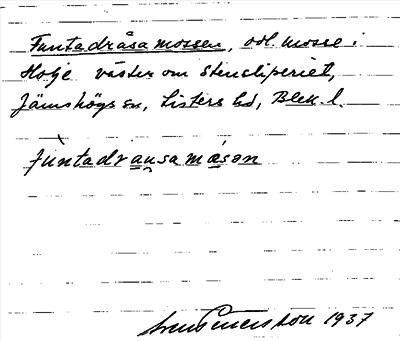 Funtadråsamossen, odl. mosse i
Holje väster om stensliperiet,
Jämshögs sn, Listers hd, Blek. l.
fùntadrausamǻsən
1937